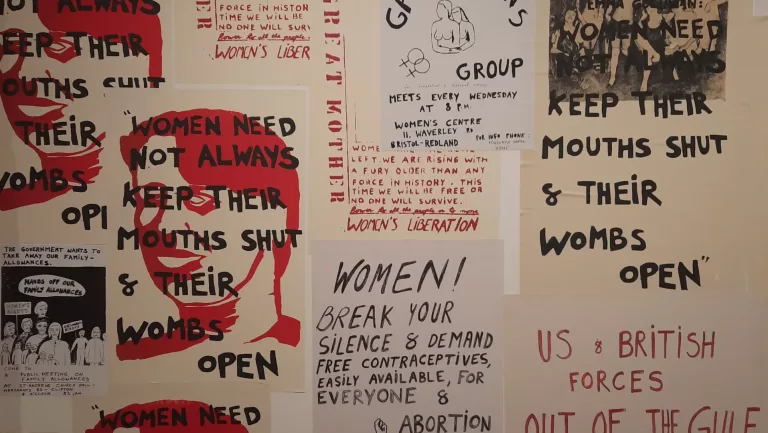 NOT ALWAYS
KEEP THEIR
MOUTHS SHUT
THEIR
WOMBS
OPE
"WOMEN NEED
NOT ALWAYS
KEEP THEIR
MOUTHS SHUT
& THEIR
WOMBS
OPEN
"WOMEN NEED
THE GOVERNMENT WANTS TO
TAKE AWAY OUR FAMILY-
ALLOWANCES.
HANDS OFF OUR
FAMILY ALLOWANCES
COME TO
A PUBLIC MEETING ON
FAMILY ALLOWANCES
FORCE IN HISTOR
TIME WE WILL BE
NO ONE WILL SURV
Power to all the people
WOMEN'S LIBER
GREAT MOTHER
LEFT. WE ARE RISING WITH
A FURY OLDER THAN ANY
FORCE IN HISTORY. THIS
TIME WE WILL BE FREE OR
NO ONE WILL SURVIVE.
Power to all the people or to none
WOMEN'S LIBERATION
GROUP
MEETS EVERY WEDNESDAY
AT 8 PM.
WOMEN'S CENTRE
11, WAVERLEY RD
BRISTOL-REDLAND
FOR INFO PHONE:
WOMEN!
BREAK YOUR
SILENCE & DEMAND
FREE CONTRACEPTIVES,
EASILY AVAILABLE, FOR
EVERYONE &
ABORTION
EMMA GOLDMAN:
WOMEN NEED
NOT ALWAYS
KEEP THEIR
MOUTHS SHUT
& THEIR
WOMBS
OPEN"
US & BRITISH
FORCES
OUT OF THE GULF